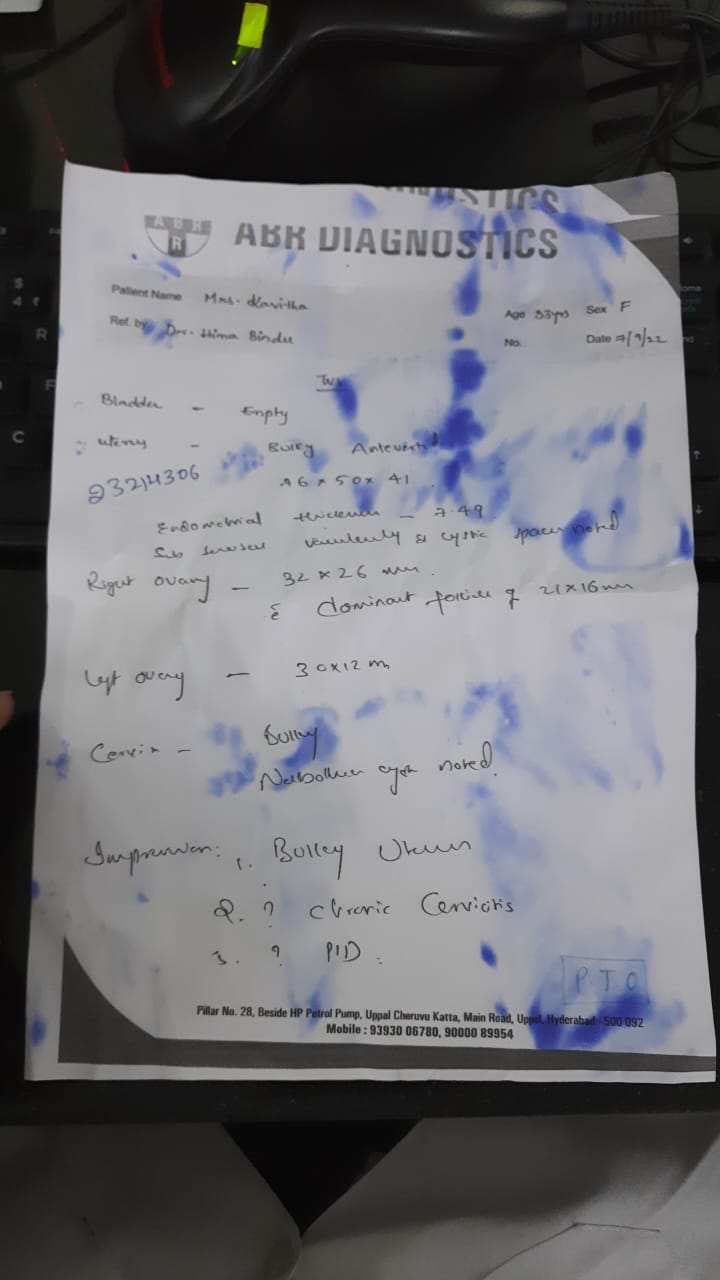 ABR
R
ABR DIAGNOSTICS
Patient Name Mrs. Kavitha
Age 33yrs Sex F
Ref. by Dr. Hima Bindu
No. Date 7/9/22
TVS
Bladder - Empty
uterus - Bulky Anteverted
23214306
50 x 41
Endometrial thickness - 7.49
Sub & cystic spaces noted
Right ovary - 32 x 26 mm.
c̄ dominant follicle of 21x16mm
left ovary - 30x12 m
Cervix - Bulky
Nabothian cysts noted.
Impression: 1. Bulky Uterus
2. ? Chronic Cervicitis
3. ? PID.
P.T.O
Pillar No. 28, Beside HP Petrol Pump, Uppal Cheruvu Katta, Main Road, Uppal, Hyderabad - 500 092
Mobile : 93930 06780, 90000 89954